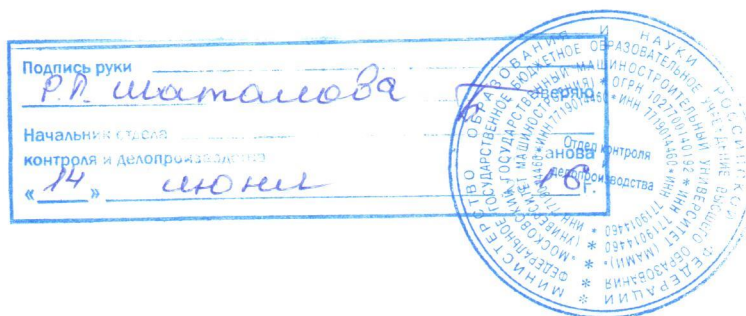 Подпись руки
Р.Л. Шаталова
заверяю
Начальник отдела
контроля и делопроизводства
анова
« 14 » июня 16 г.
МИНИСТЕРСТВО ОБРАЗОВАНИЯ И НАУКИ РОССИЙСКОЙ ФЕДЕРАЦИИ *
ФЕДЕРАЛЬНОЕ ГОСУДАРСТВЕННОЕ БЮДЖЕТНОЕ ОБРАЗОВАТЕЛЬНОЕ УЧРЕЖДЕНИЕ ВЫСШЕГО ОБРАЗОВАНИЯ *
«МОСКОВСКИЙ ГОСУДАРСТВЕННЫЙ МАШИНОСТРОИТЕЛЬНЫЙ УНИВЕРСИТЕТ (МАМИ)» *
(УНИВЕРСИТЕТ МАШИНОСТРОЕНИЯ) * ОГРН 1027700140192 * ИНН 7719014460 *
ИНН 7719014460 * ИНН 7719014460 * ИНН 7719014460
Отдел контроля
делопроизводства